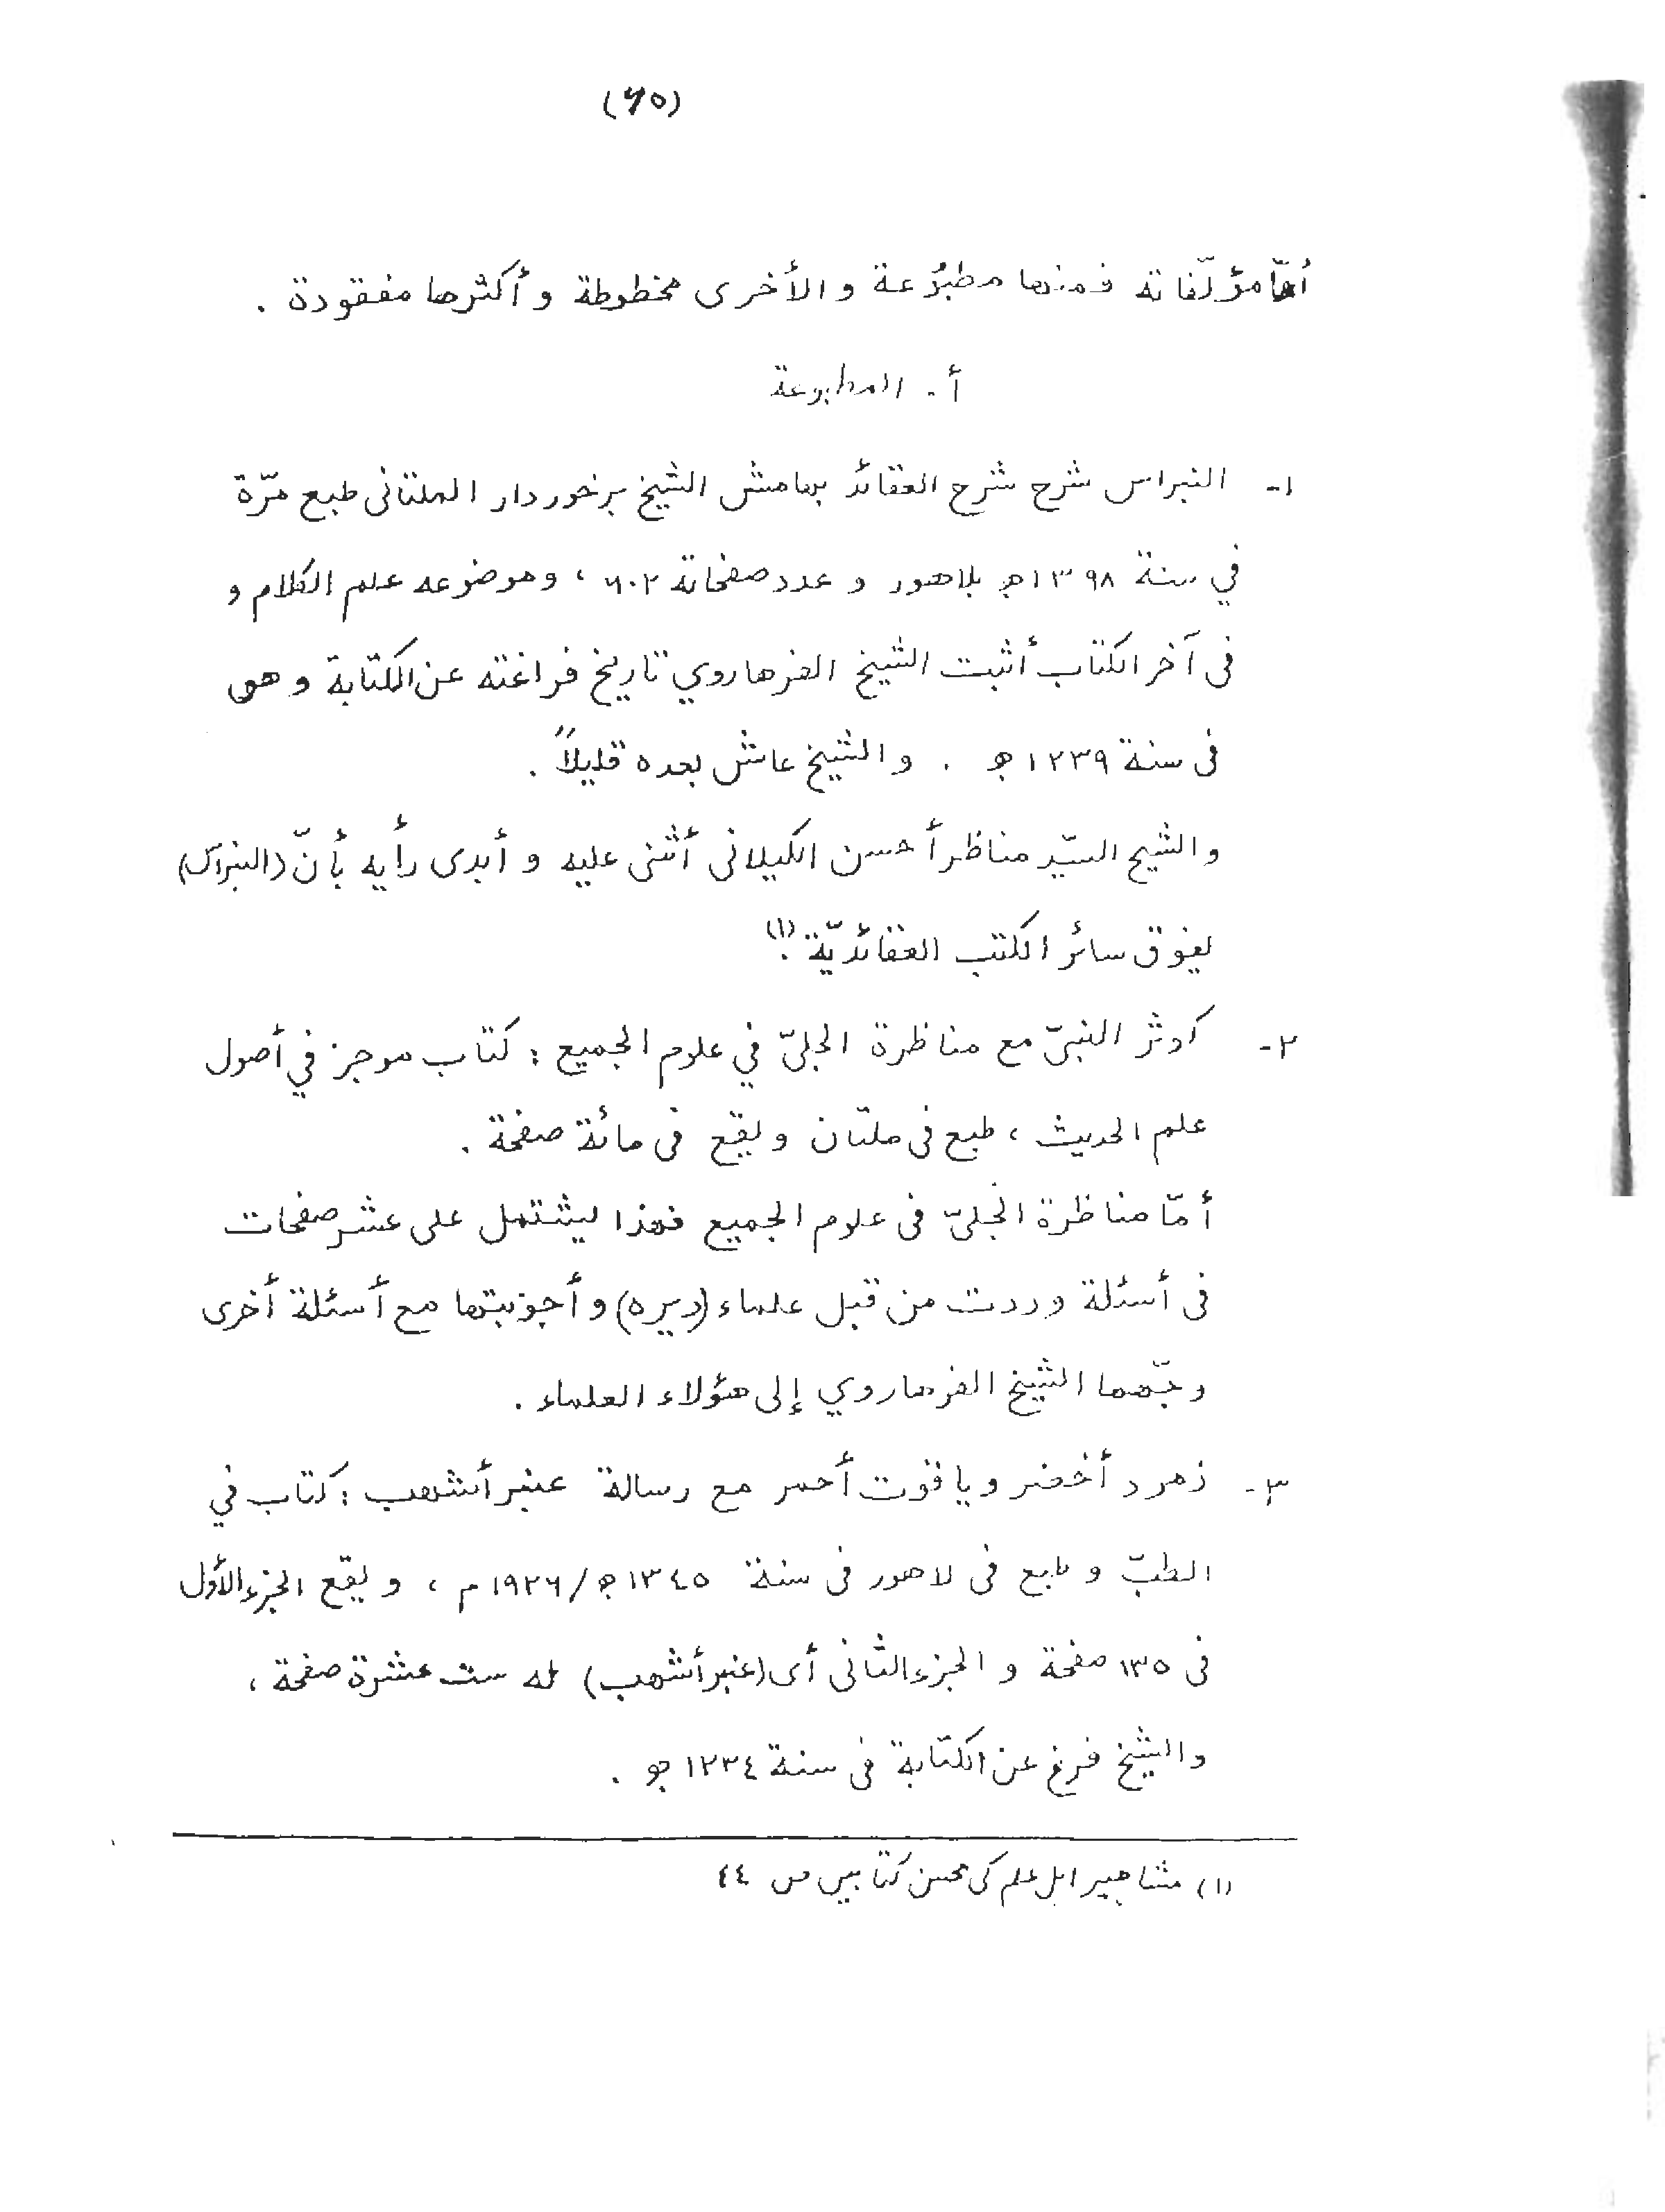 (٦٥)
أمّا مؤلّفاته فمنها مطبوعة والأخرى مخطوطة وأكثرها مفقودة .
أ . المطبوعة
١- النبراس شرح شرح العقائد بهامش الشيخ برخوردار الملتانى طبع مرّة
في سنة ١٣٩٨ھ بلاهور و عدد صفحاته ٦٠٢ ، وموضوعه علم الكلام و
فى آخر الكتاب أثبت الشيخ الفرهاروي تاريخ فراغته عن الكتابة وهى
فى سنة ١٢٣٩ھ . والشيخ عاش بعده قليلاً .
والشيخ السيّد مناظر أحسن الكيلانى أثنى عليه و أبدى رأيه بأنّ (النبراس)
يفوق سائر الكتب العقائديّة .(١)
٢- كوثر النبىّ مع مناظرة الجلىّ في علوم الجميع : كتاب موجز في أصول
علم الحديث ، طبع فى ملتان ويقع فى مائة صفحة .
أمّا مناظرة الجلىّ فى علوم الجميع فهذا يشتمل على عشر صفحات
فى أسئلة وردت من قبل علماء (ديره) وأجوبتها مع أسئلة أخرى
وجّهها الشيخ الفرهاروي إلى هؤلاء العلماء .
٣- زمرد أخضر وياقوت أحمر مع رسالة عنبر أشهب : كتاب في
الطبّ و طبع فى لاهور فى سنة ١٣٤٥ھ/١٩٢٦م ، ويقع الجزء الأول
فى ١٣٥ صفحة و الجزء الثانى أى (عنبر أشهب) له ست عشرة صفحة ،
والشيخ فرغ عن الكتابة فى سنة ١٢٣٤ھ .
(١) مشاهير اہل علم كى محسن كتابيں ص ٤٤